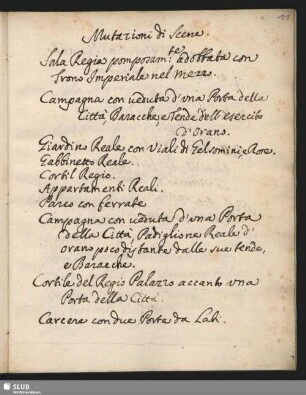 11
Mutazioni di Scene.
Sala Regia pomposam.te adobbata con
Trono Imperiale nel mezo.
Campagna con veduta d'una Porta della
Città, Baracche, e Tende dell'esercito
d'Orano.
Giardino Reale con Viali di Gelsomini, e Rose.
Gabbinetto Reale.
Cortil Regio.
Appartamenti Reali.
Parco con ferrate
Campagna con veduta d'una Porta
della Città, Padiglione Reale d'
orano poco distante dalle sue tende,
e Baracche.
Cortile del Regio Palazzo accanto una
Porta della Città.
Carcere con due Porte da Lati.
SLUB